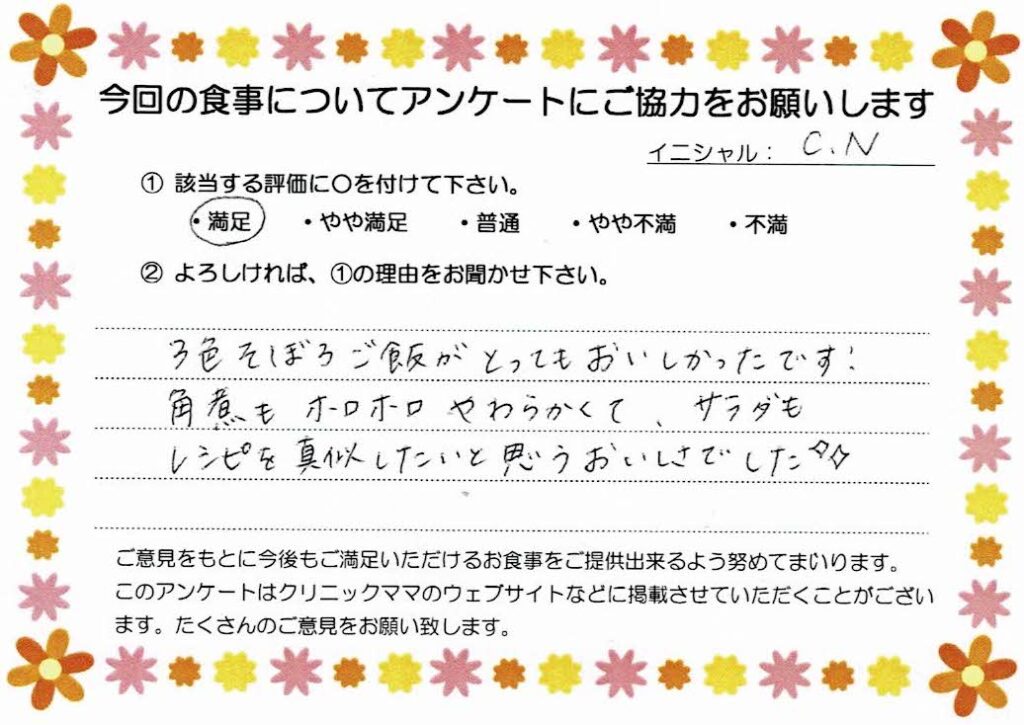 今回の食事についてアンケートにご協力をお願いします
イニシャル： C.N
① 該当する評価に〇を付けて下さい。
・満足 ・やや満足 ・普通 ・やや不満 ・不満
② よろしければ、①の理由をお聞かせ下さい。
3色そぼろご飯がとってもおいしかったです!
角煮もホロホロやわらかくて、サラダも
レシピを真似したいと思うおいしさでした✧✧
ご意見をもとに今後もご満足いただけるお食事をご提供出来るよう努めてまいります。
このアンケートはクリニックママのウェブサイトなどに掲載させていただくことがござい
ます。たくさんのご意見をお願い致します。